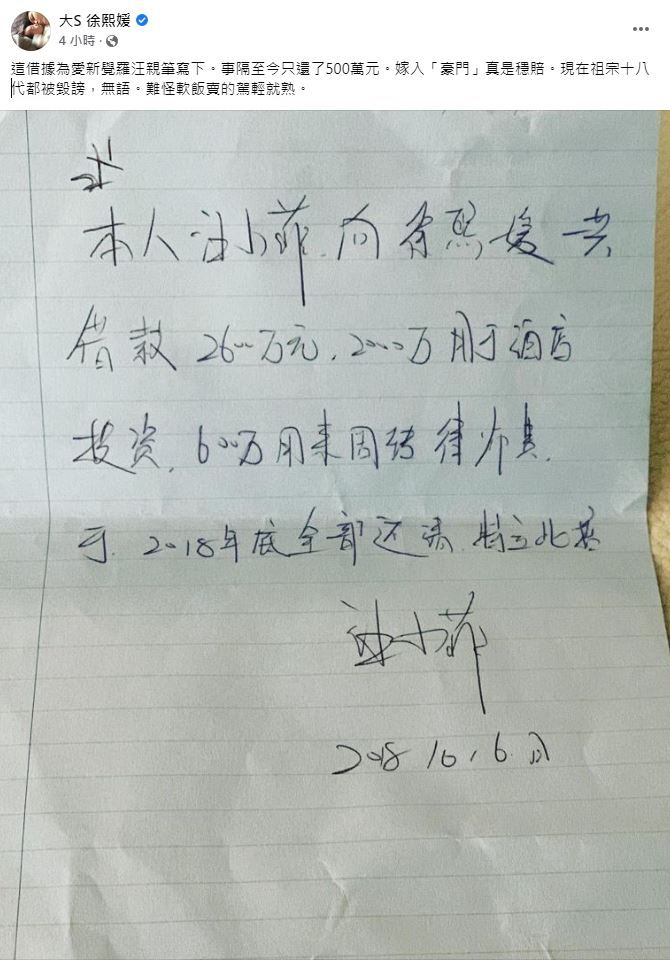 大S 徐熙媛
4 小時 ·
這借據為愛新覺羅汪親筆寫下。事隔至今只還了500萬元。嫁入「豪門」真是穩賠。現在祖宗十八
代都被毀謗，無語。難怪軟飯賣的駕輕就熟。
本人汪小菲.向徐熙媛共
借款 2600万元,2000万用于酒店
投资,600万用来周转律师费.
于.2018年底全部还清.特立此据
汪小菲
2018 10,6.日